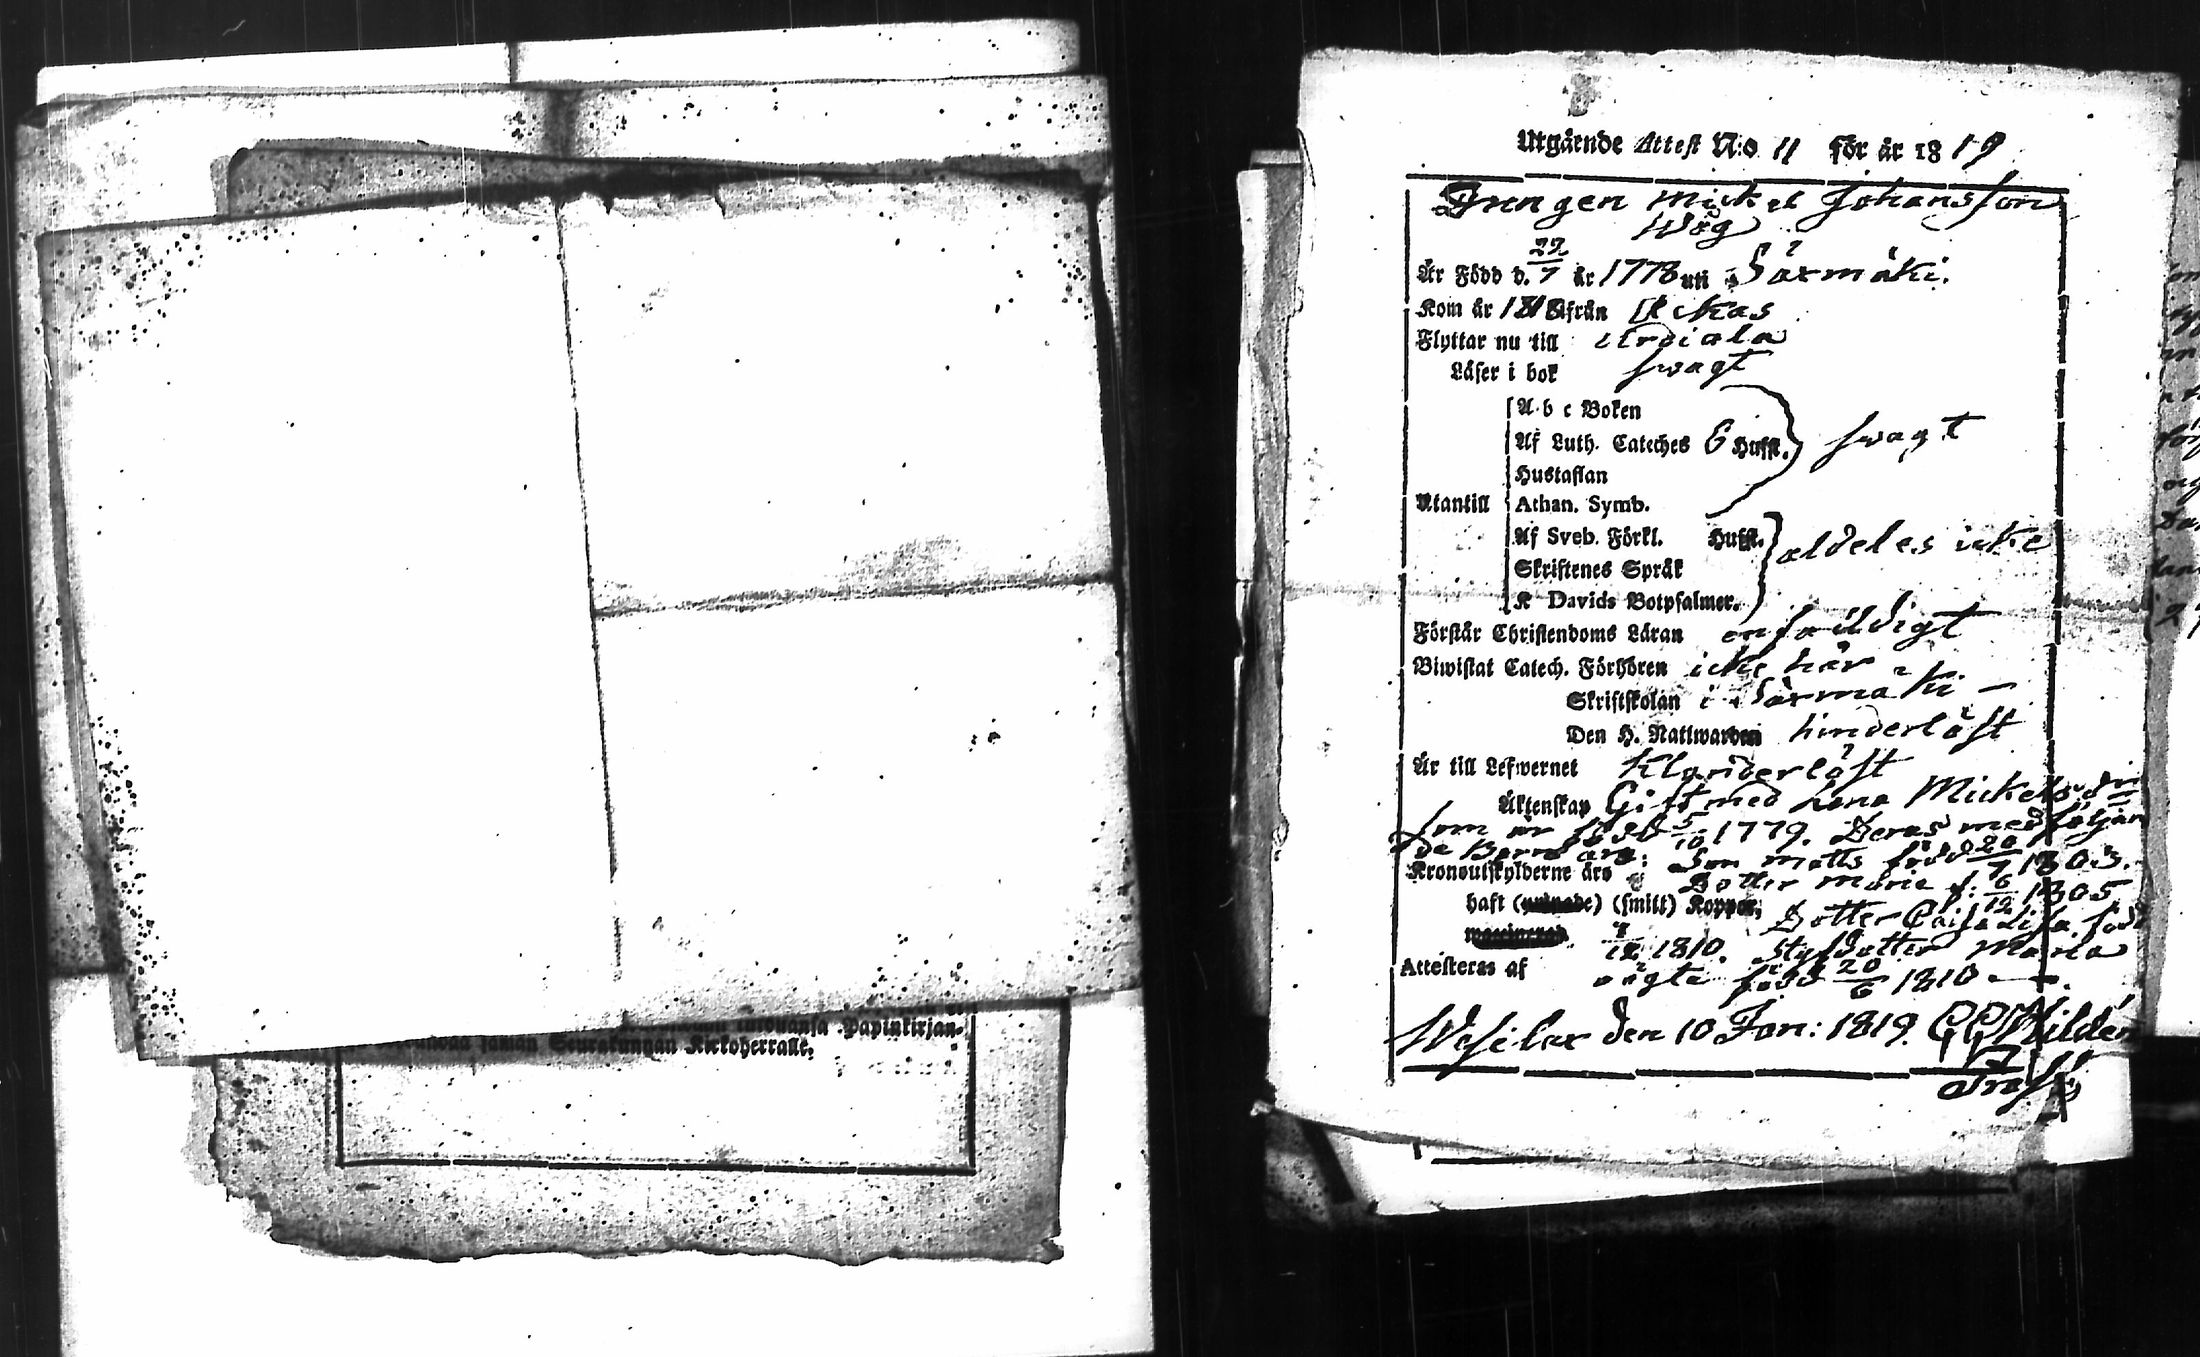 Papinkirjan-
Seurakunnan Kirkoherralle.
Utgårnde Attest N:o 11 för år 1819
Drengen Mickel Johansson
Wög
Är Född d. 22/7 år 1778 uti Säxmäki.
Kom år 1818 från
Flyttar nu till Urdiala
Läser i bok swagt
A b c Boken
Af Luth. Cateches 6 Hufst. swagt
Hustaflan
Utantill Athan. Symb.
Af Sveb. Förkl. Hufst. aldeles icke
Skriftenes Språk
K Davids Botpsalmer.
Förstår Christendoms Läran enfaldigt
Biwistat Catech. Förhören icke här
Skriftskolan i Säxmäki —
Den H. Nattwarden hinderlöst
Är till Lefwernet Klanderlöst
Äktenskap Gift med Lena Mickelsdr
som är född 5/10 1779. Deras medföljan
de Barn äro: Son Matts född 20/7 1803.
Kronoutskylderne äro Dotter Maria f: 6/12 1805
haft (smitt) Koppor, Dotter Caisa Lisa född
1810. Styfdotter Maria
Attesteras af oägta född 20/6 1810 —.
Wesilax den 10 Jan: 1819. Wildén